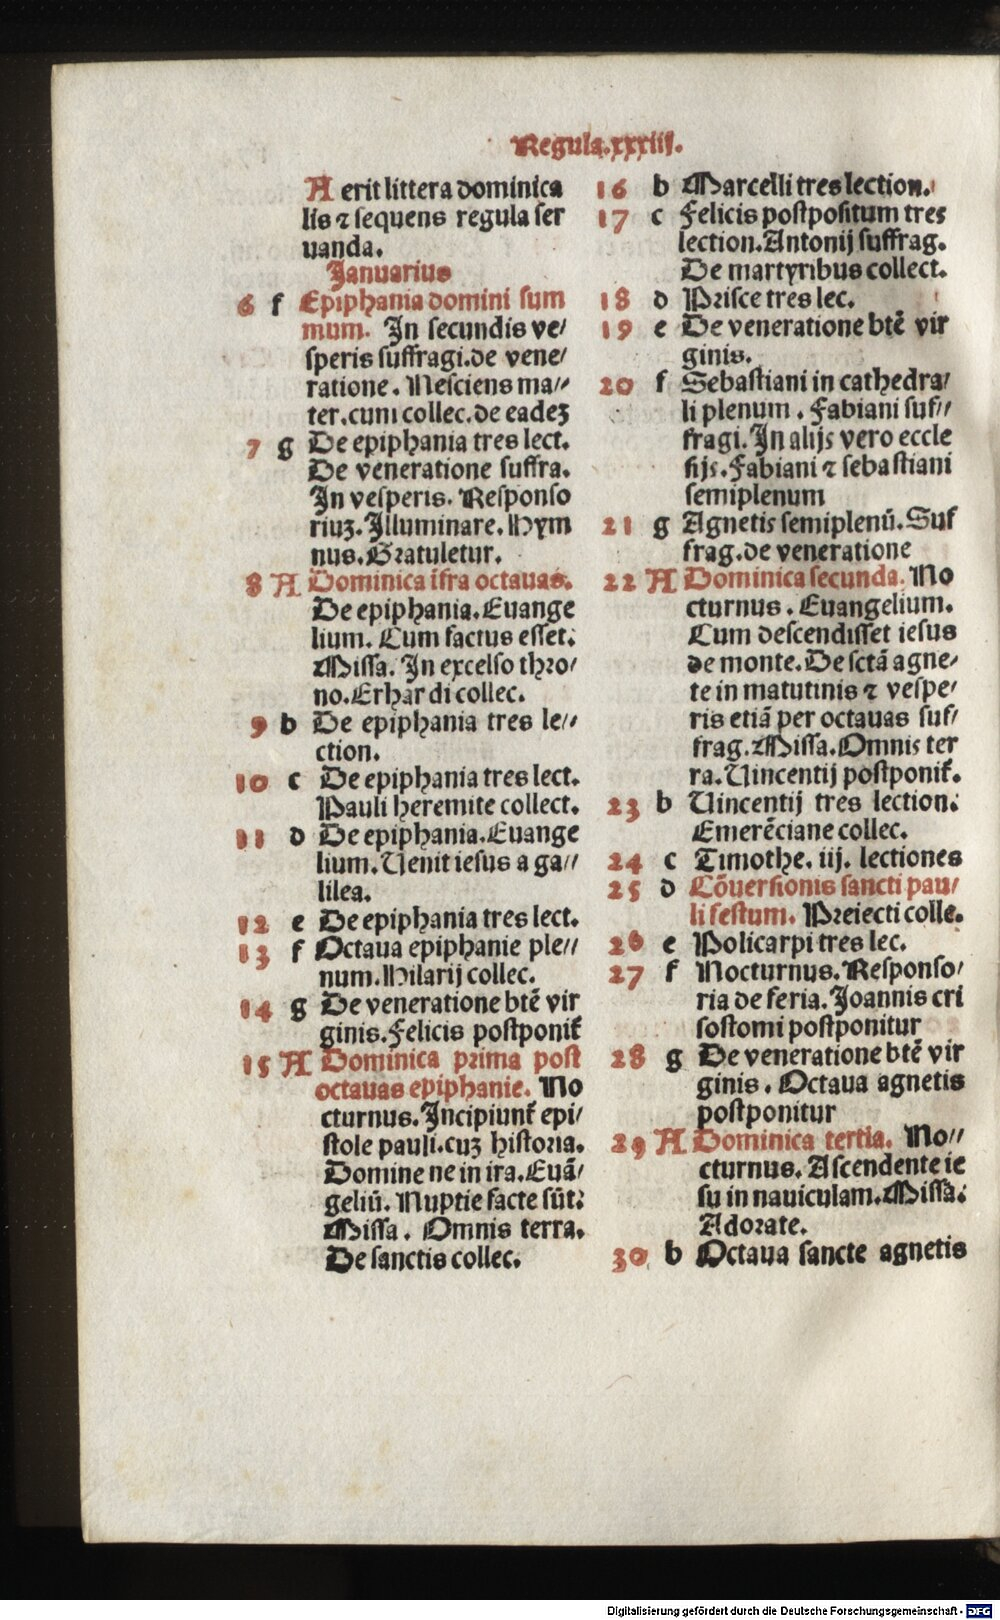 Regula.xxxiij.
A erit littera dominica
lis ⁊ sequens regula ser
uanda.
Januarius
6 f Epiphania domini sum
mum. In secundis ve⸗
speris suffragi.de vene⸗
ratione. Nesciens ma⸗
ter.cum collec.de eadeʒ
7 g De epiphania tres lect.
De veneratione suffra.
In vesperis. Responso
riuʒ. Illuminare. Hym
nus. Gratuletur.
8 A Dominica īfra octauas.
De epiphania. Euange
lium. Cum factus esset:
Missa. In excelso thro⸗
no. Erhardi collec.
9 b De epiphania tres le⸗
ction.
10 c De epiphania tres lect.
Pauli heremite collect.
11 d De epiphania. Euange
lium. Uenit iesus a ga⸗
lilea.
12 e De epiphania tres lect.
13 f Octaua epiphanie ple⸗
num. Hilarij collec.
14 g De veneratione btē vir
ginis. Felicis postponit᷑
15 A Dominica prima post
octauas epiphanie. No
cturnus. Incipiunt᷑ epi⸗
stole pauli.cuʒ historia.
Domine ne in ira. Euā⸗
geliū. Nuptie facte sūt:
Missa. Omnis terra.
De sanctis collec.
16 b Marcelli tres lection.
17 c Felicis postpositum tres
lection. Antonij suffrag.
De martyribus collect.
18 d Prisce tres lec.
19 e De veneratione btē vir
ginis.
20 f Sebastiani in cathedra⸗
li plenum. Fabiani suf⸗
fragi. In alijs vero eccle
sijs. Fabiani ⁊ sebastiani
semiplenum
21 g Agnetis semiplenū. Suf
frag.de veneratione
22 A Dominica secunda. No
cturnus. Euangelium.
Cum descendisset iesus
de monte. De sctā agne⸗
te in matutinis ⁊ vespe⸗
ris etiā per octauas suf⸗
frag. Missa. Omnis ter
ra. Uincentij postponit᷑.
23 b Uincentij tres lection.
Emerēciane collec.
24 c Timothe. iij. lectiones
25 d Cōuersionis sancti pau⸗
li festum. Preiecti colle.
26 e Policarpi tres lec.
27 f Nocturnus. Responso⸗
ria de feria. Joannis cri
sostomi postponitur
28 g De veneratione btē vir
ginis. Octaua agnetis
postponitur
29 A Dominica tertia. No⸗
cturnus. Ascendente ie
su in nauiculam. Missa:
Adorate.
30 b Octaua sancte agnetis
Digitalisierung gefördert durch die Deutsche Forschungsgemeinschaft - DFG